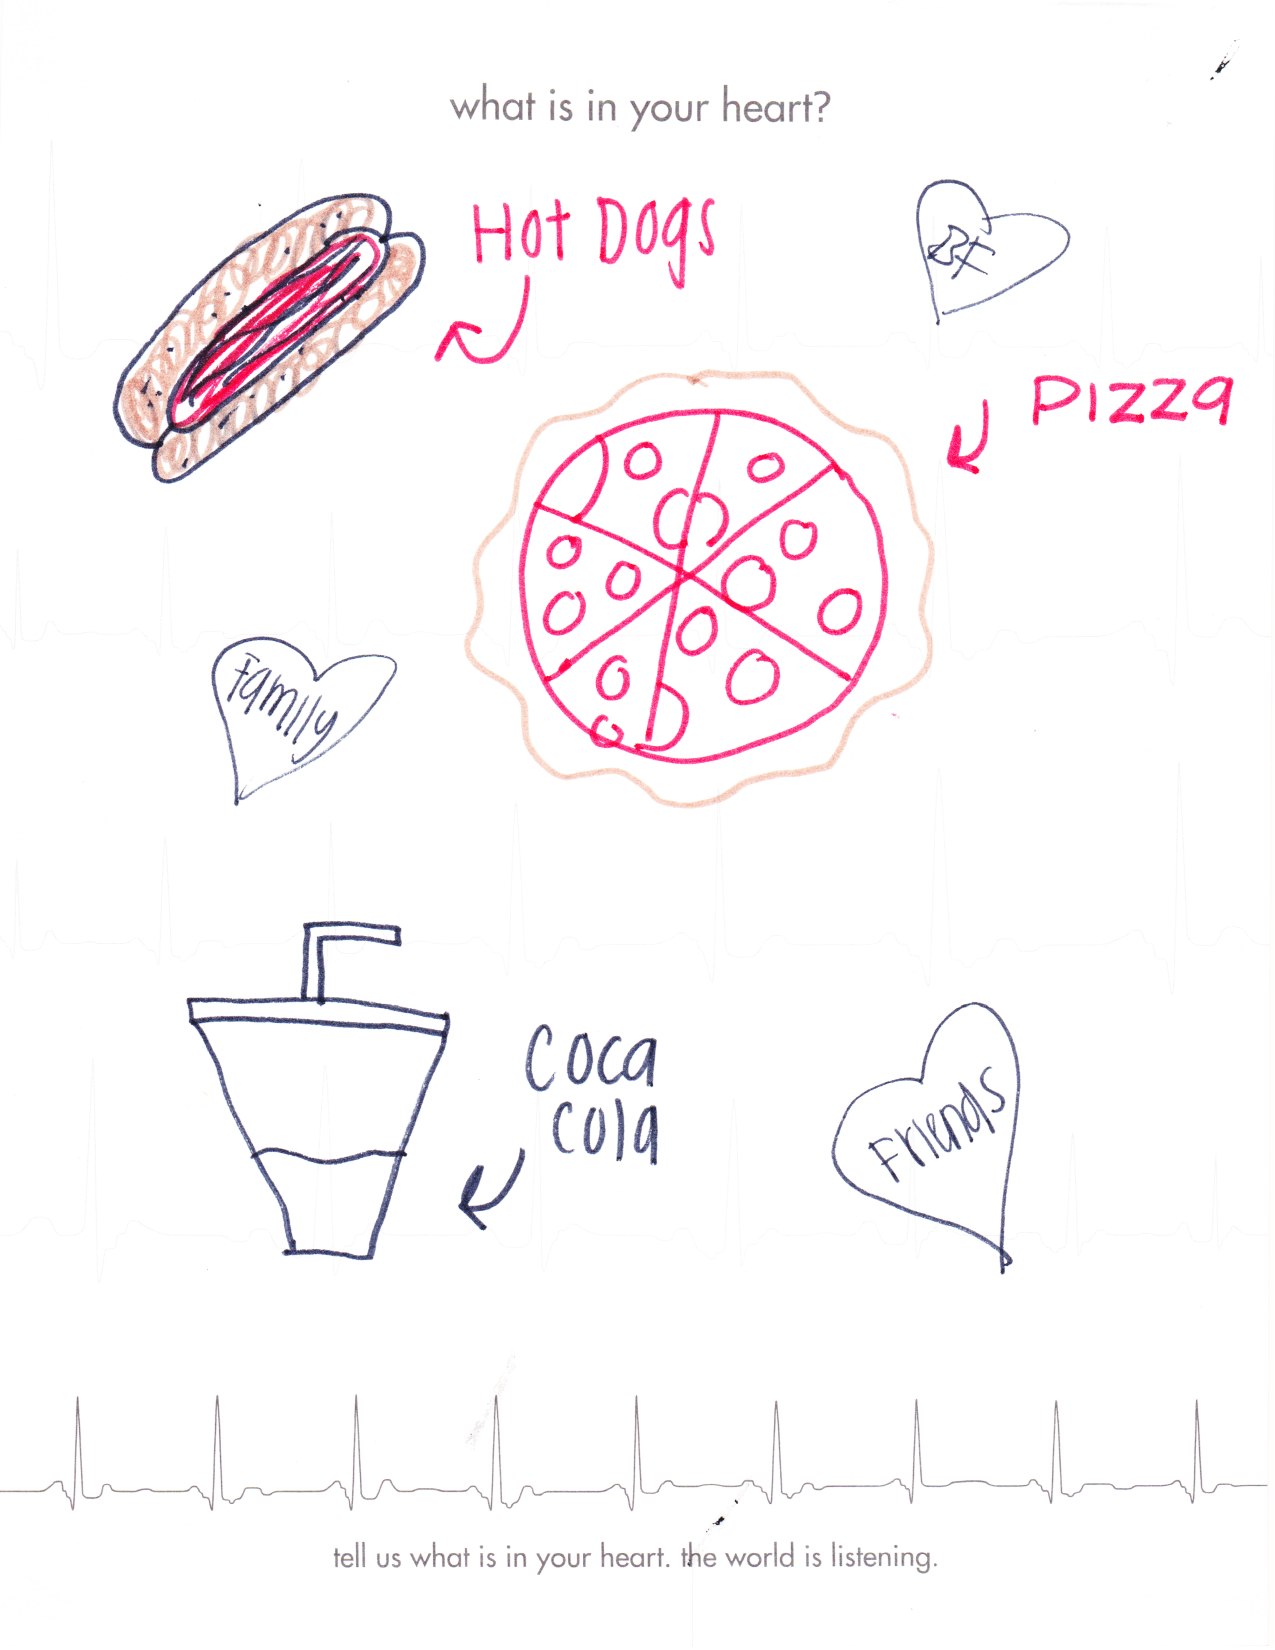 what is in your heart?
Hot Dogs
BF
PIZZA
Family
Coca
Cola
Friends
tell us what is in your heart. the world is listening.